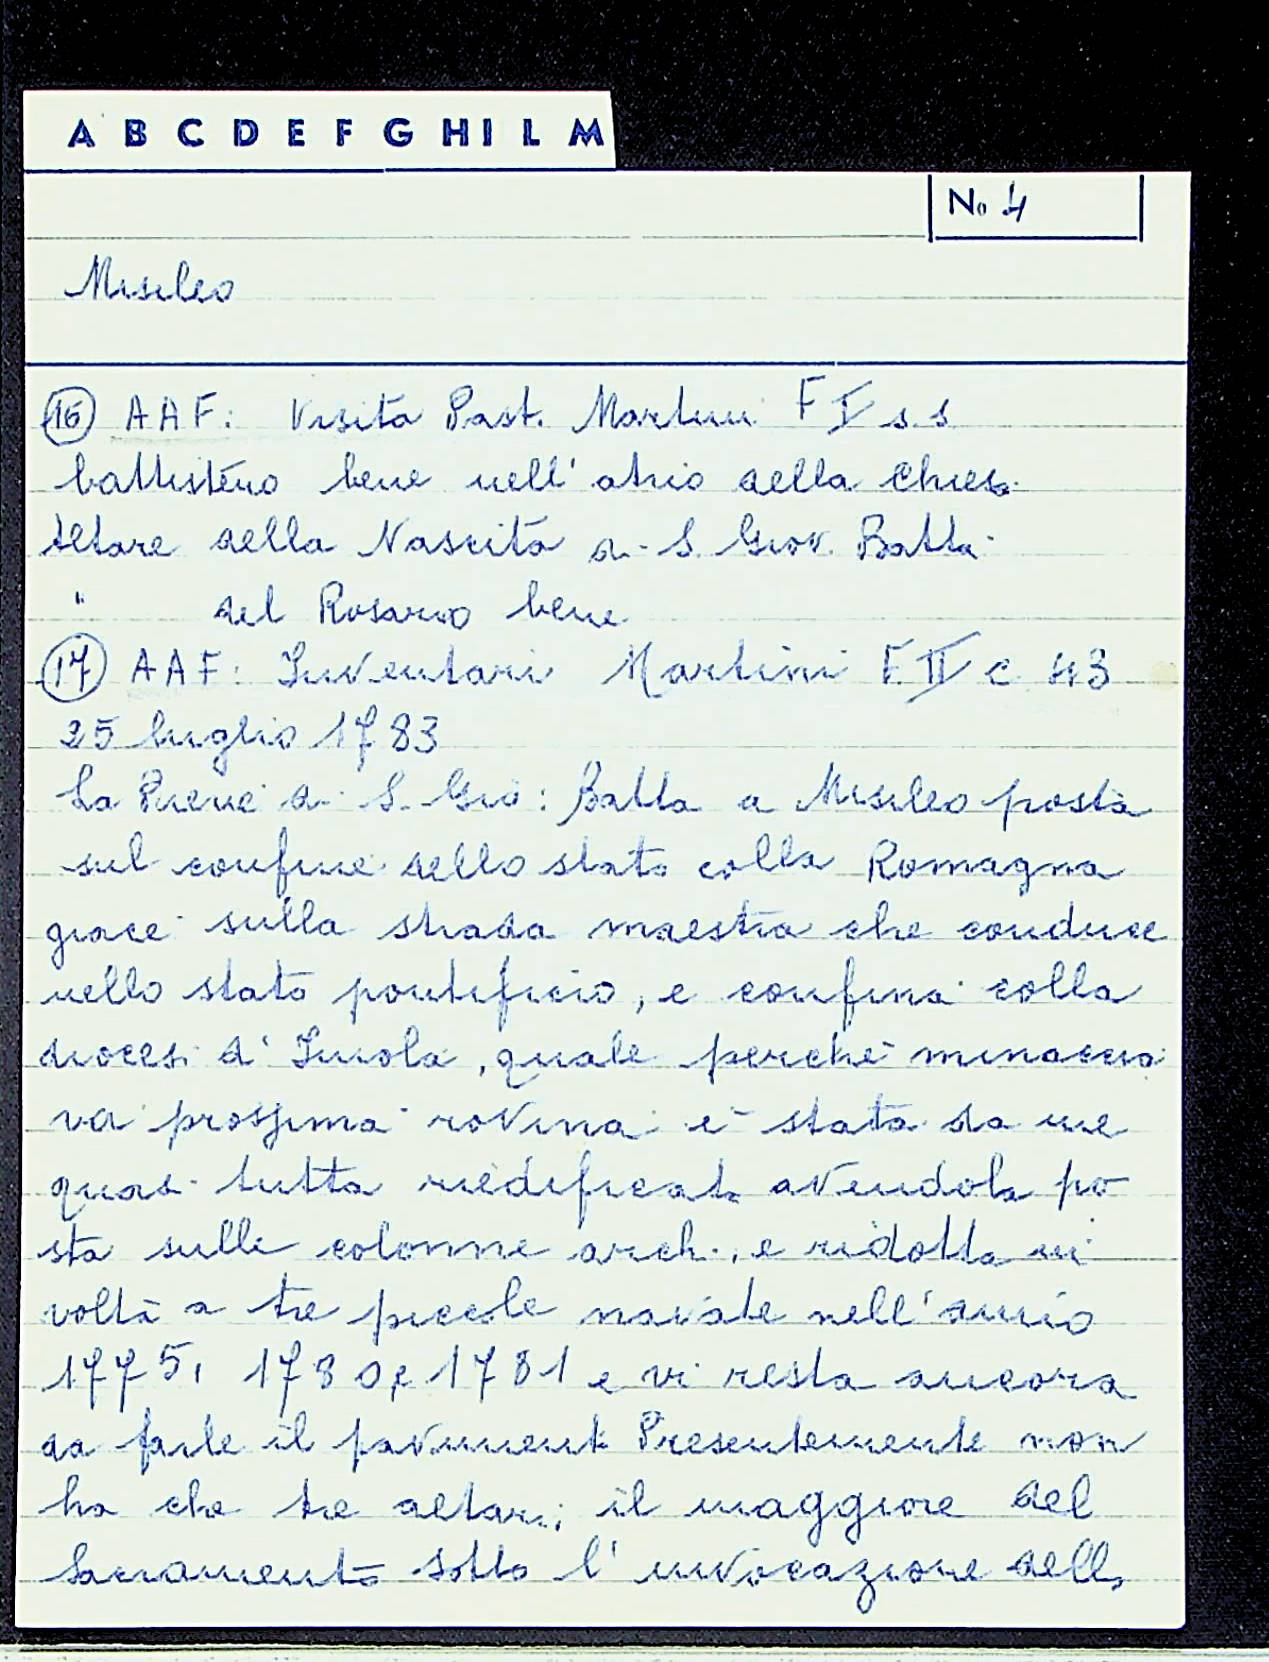 A B C D E F G H I L M
No 4
Misileo
16 AAF: Visita Past. Martini F I s.s
battistero bene nell'atrio della Chiesa
Altare della Nascita di S. Giov. Batta
" del Rosario bene
17 AAF: Inventari Martini F. II c 43
25 luglio 1783
La Pieve di S. Gio: Batta a Misileo posta
sul confine dello stato colla Romagna
giace sulla strada maestra che conduce
nello stato pontificio, e confina colla
diocesi d'Imola, quale perchè minaccia
va prossima rovina è stata da me
quasi tutta riedificata avendola po
sta sulle colonne arch., e ridotta in
volta a tre piccole navate nell'anno
1775, 1780, e 1781 e vi resta ancora
da farle il pavimento Presentemente non
ha che tre altari; il maggiore del
Sacramento sotto l'invocazione dell